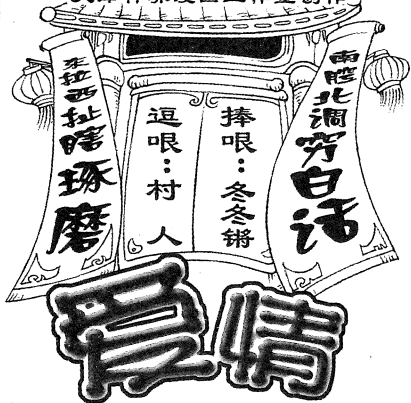 南腔北调穷白话
捧哏：冬冬锵
逗哏：村人
东拉西扯瞎琢磨
爱情